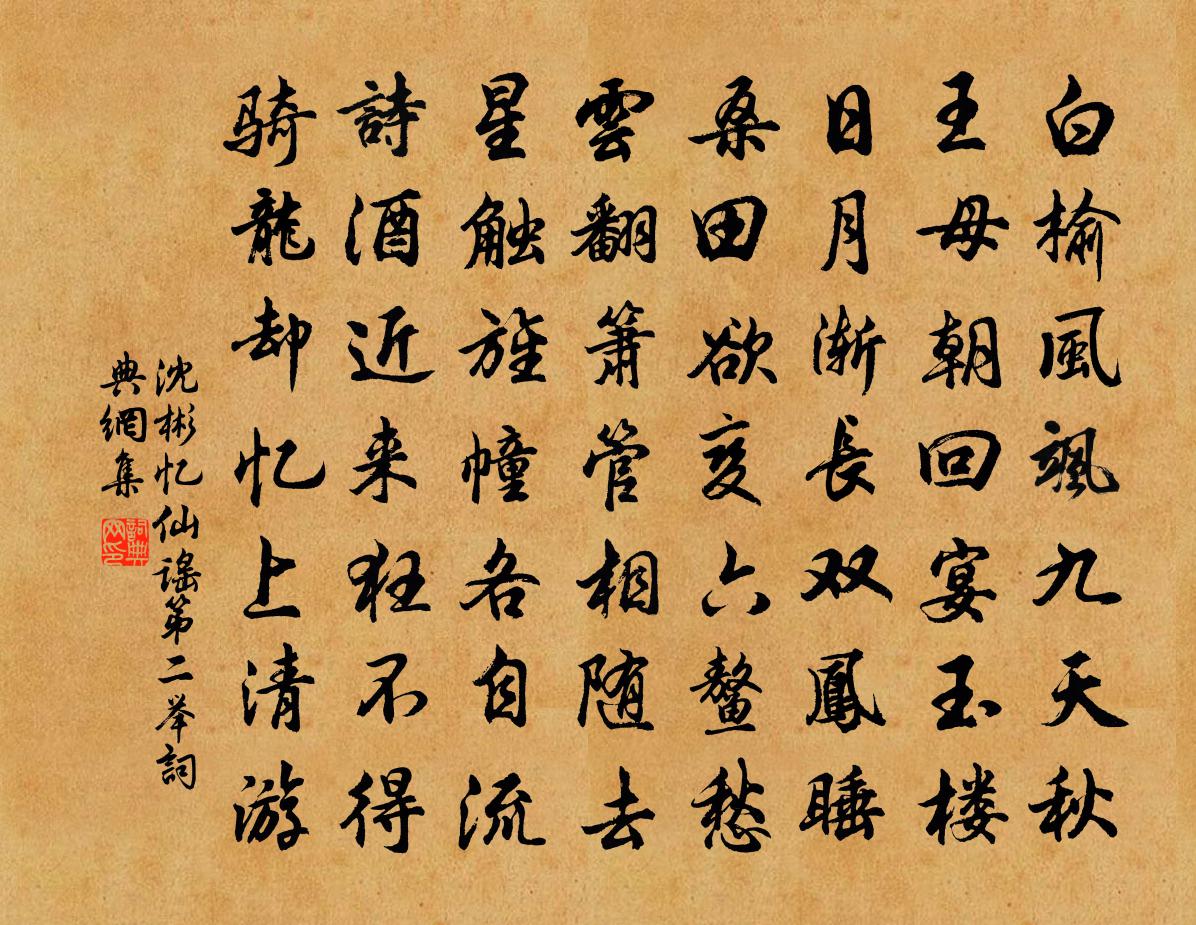 白榆風颯九天秋
王母朝回宴玉楼
日月漸長双鳳睡
桑田欲变六鳌愁
雲翻箫管相随去
星触旌幢各自流
詩酒近来狂不得
骑龍却忆上清游
沈彬忆仙谣第二举詞
典網集
詞典网印